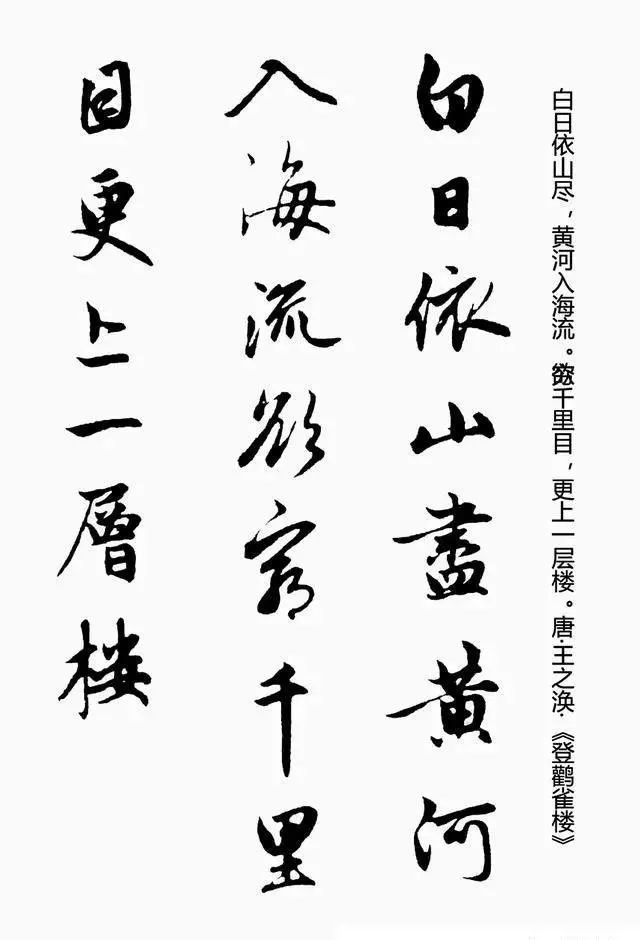 白日依山尽，黄河入海流。欲穷千里目，更上一层楼。唐·王之涣·《登鹳雀楼》
白日依山盡黄河
入海流欲窮千里
目更上一層楼